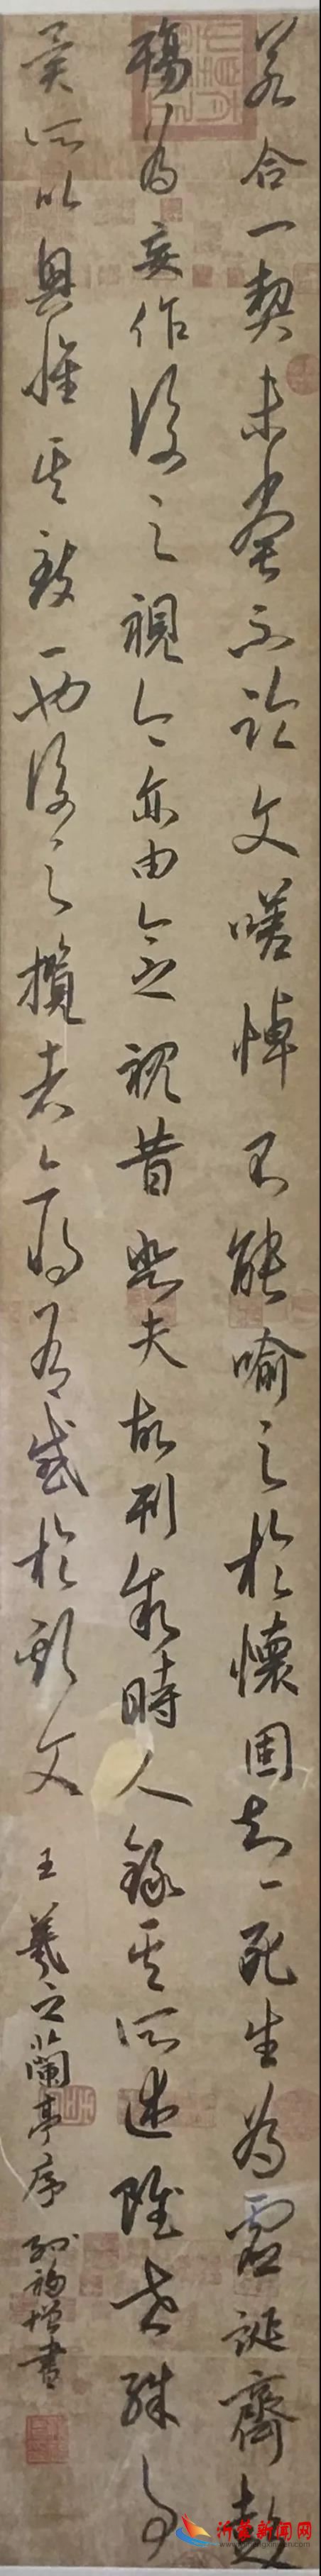 若合一契未嘗不臨文嗟悼不能喻之於懷固知一死生為虛誕齊彭
殤為妄作後之視今亦由今之視昔悲夫故列敘時人錄其所述雖世殊事
異所以興懷其致一也後之攬者亦將有感於斯文 王羲之蘭亭序 增書
沂蒙新闻网